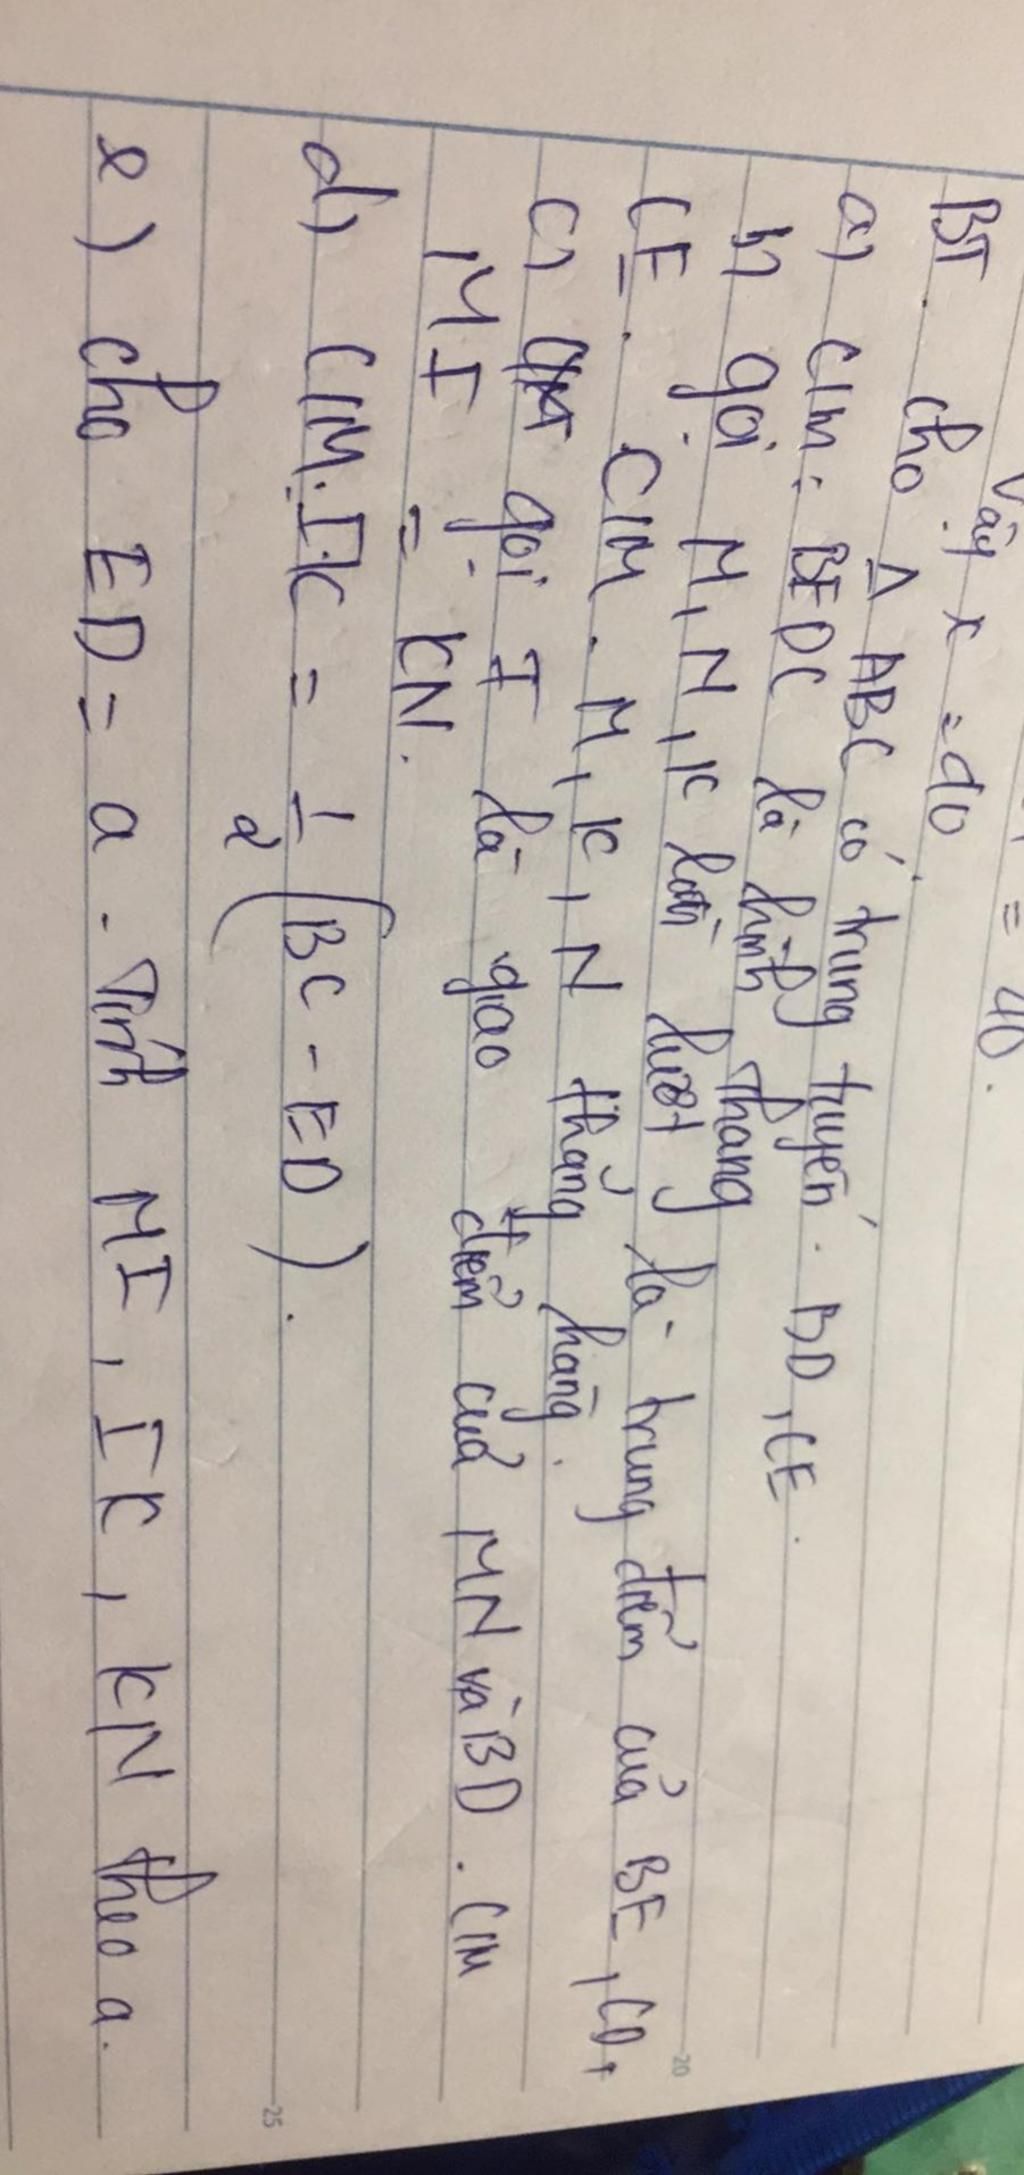 = 40.
Vậy x = 40
BT. Cho Δ ABC có trung tuyến. BD, CE.
a, CIM: BEDC là hình thang
b, gọi M, N, K lần lượt là trung điểm của BE, CD,
CE. CIM. M, K, N thẳng hàng.
c, gọi I là giao điểm của MN và BD. CIM
MI = KN.
d, CIM: IK = 1/2 (BC - ED).
e) Cho ED = a. Tính MI, IK, KN theo a.
20
25